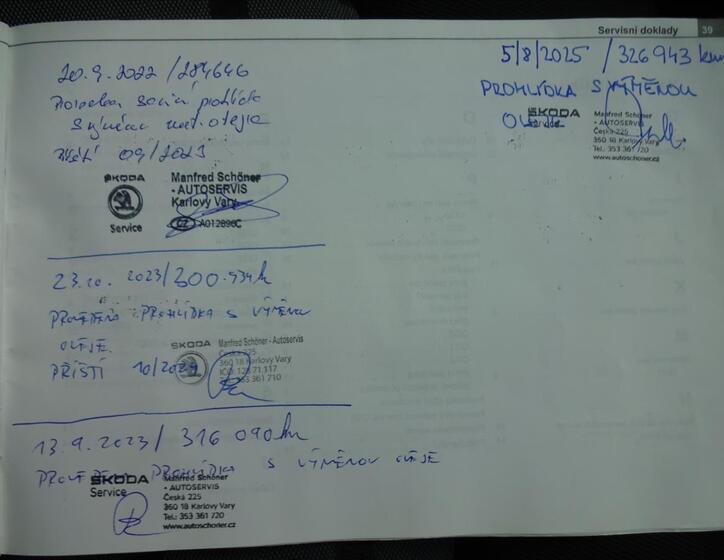 Servisní doklady 39
20.9.2022 /284646
servisní prohlídka
s výměnou mot. oleje
Příští 09/2023
ŠKODA
Service
Manfred Schöner
- AUTOSERVIS
Karlovy Vary
CZ A012896C
23.10. 2023/300.934km
PROVEDENA PROHLÍDKA S VÝMĚNOU
OLEJE
PŘÍŠTÍ 10/2024
ŠKODA
Manfred Schöner - Autoservis
Česká 225
360 18 Karlovy Vary
353 361 710
13.9.2023/ 316 090km
PROVEDENA PROHLÍDKA S VÝMĚNOU OLEJE
ŠKODA
Service
Manfred Schöner
- AUTOSERVIS
Česká 225
360 18 Karlovy Vary
Tel.: 353 361 720
www.autoschoner.cz
5/8/2025 /326943 km
PROHLÍDKA S VÝMĚNOU
OLEJE
ŠKODA
Service
Manfred Schöner
- AUTOSERVIS
Česká 225
360 18 Karlovy Vary
Tel.: 353 361 720
www.autoschoner.cz